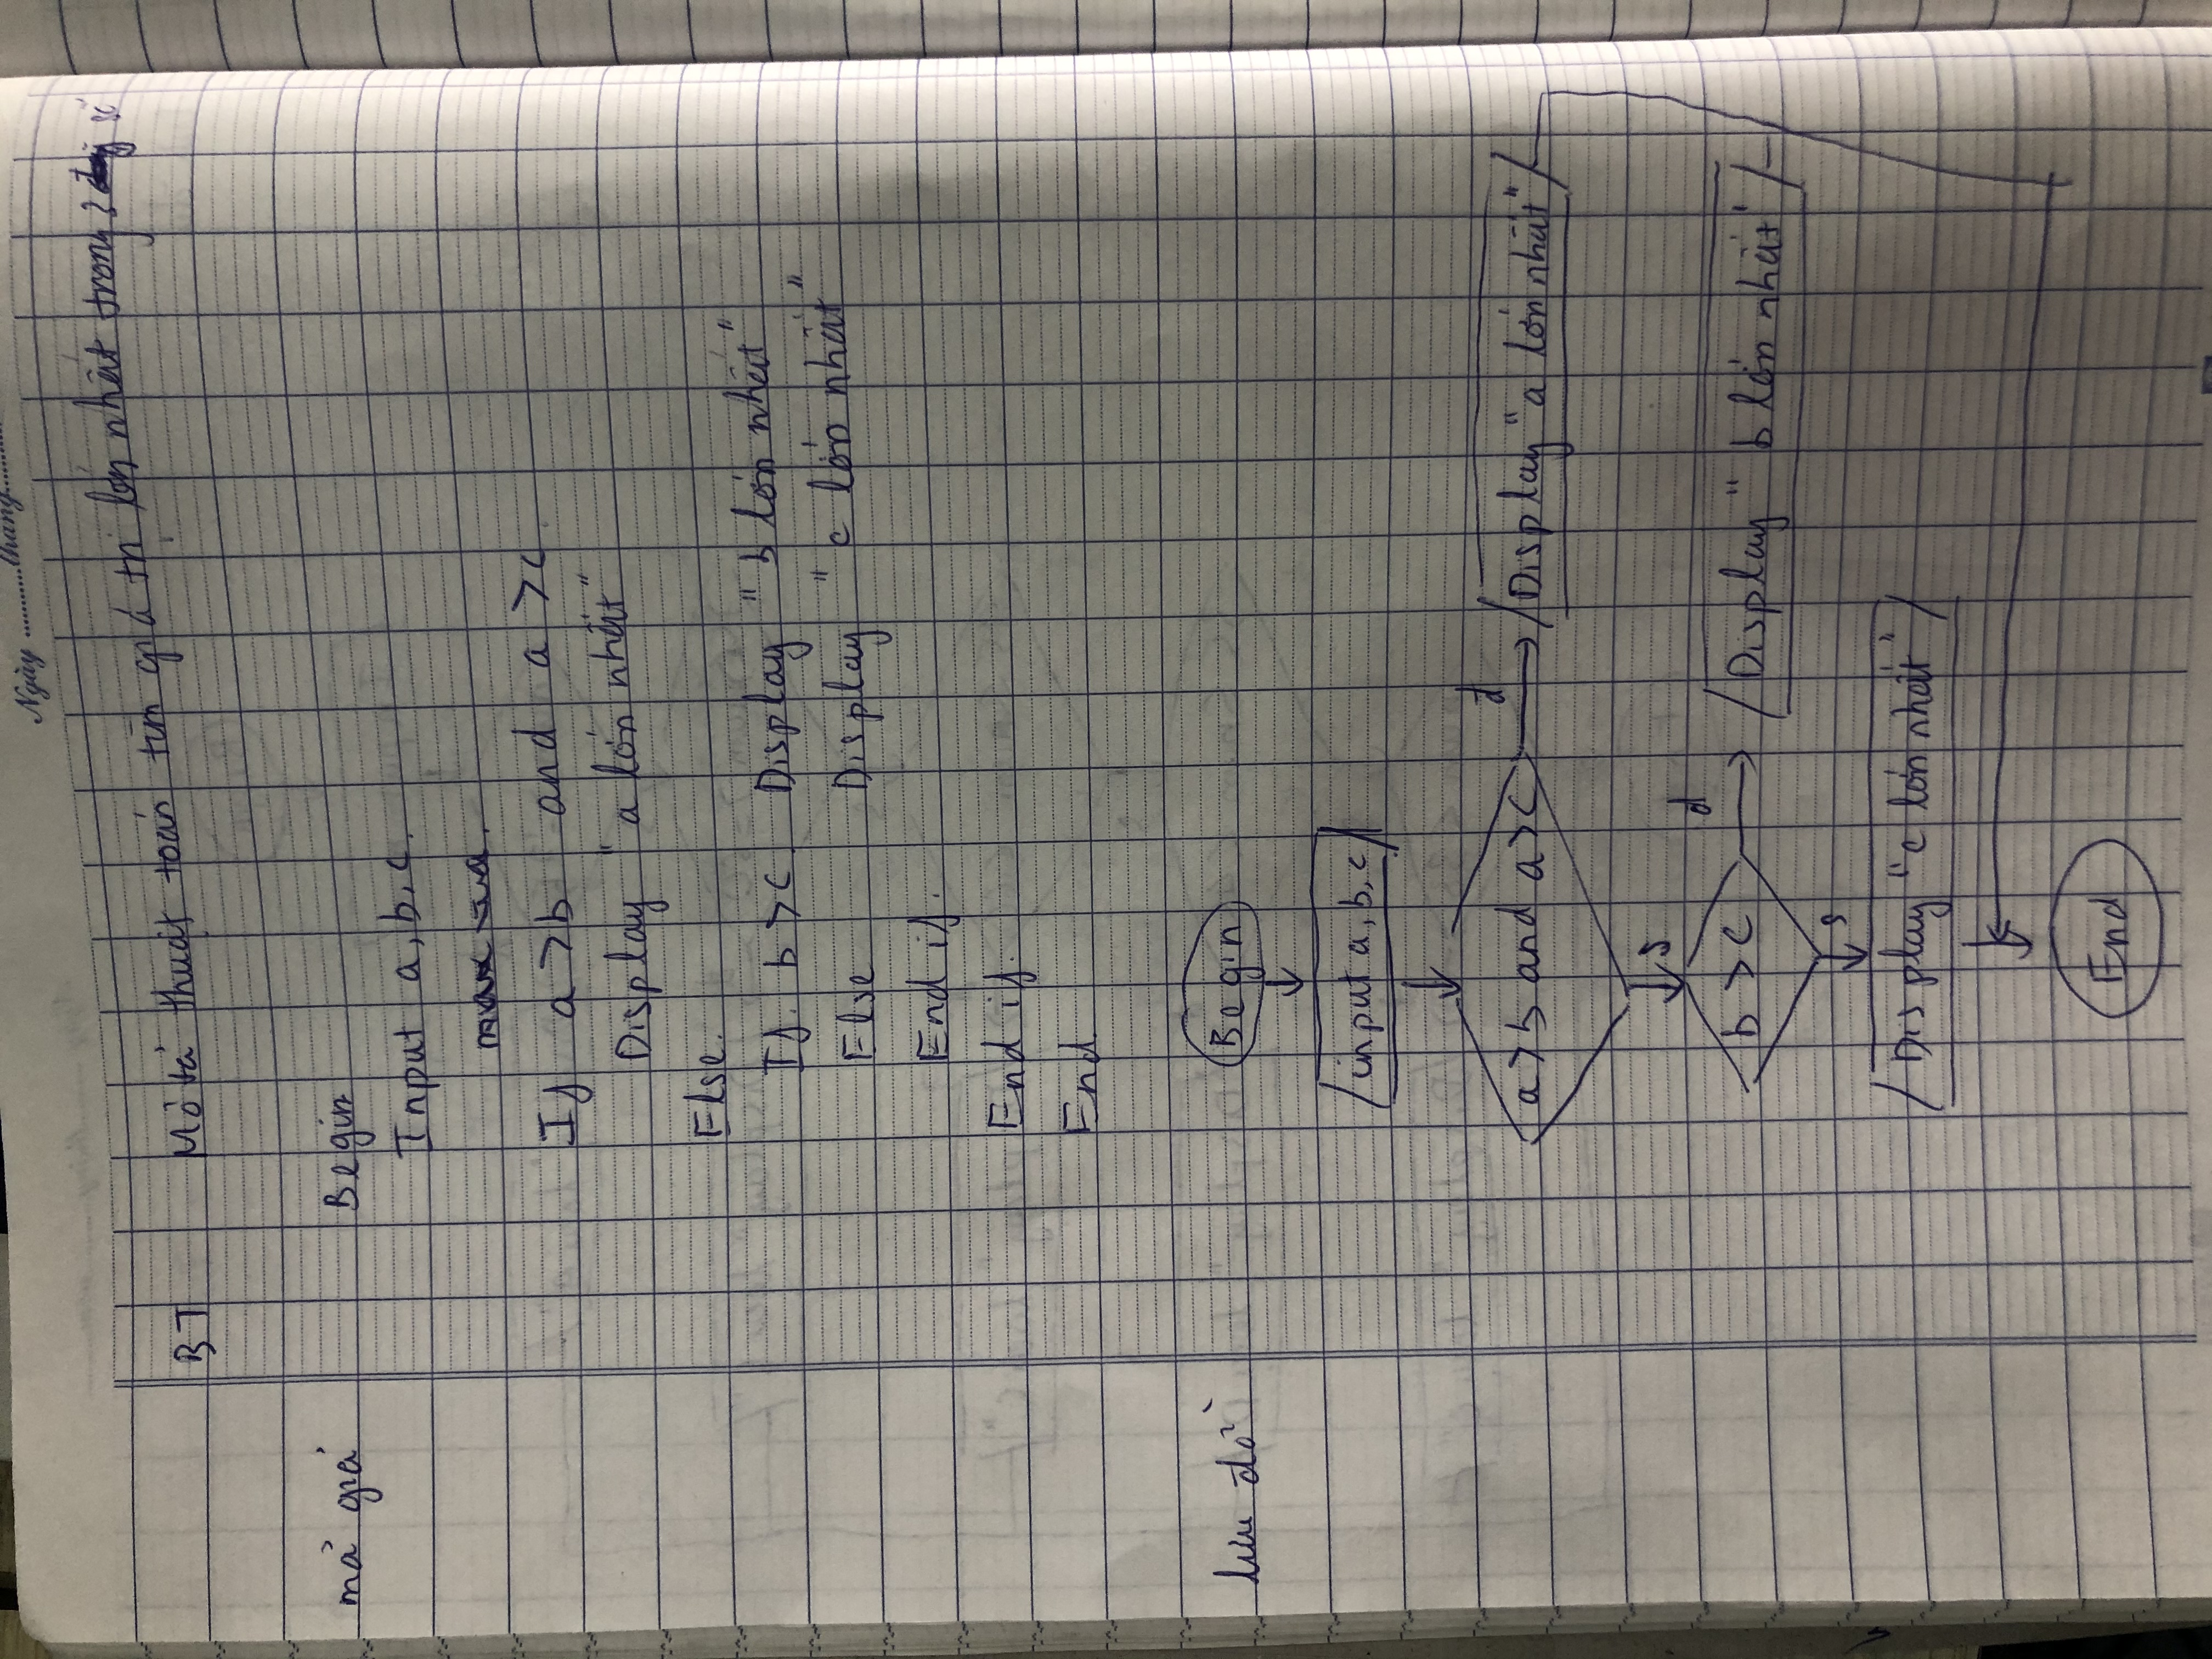 Ngày ...........tháng...........
BT Mô tả thuật toán tìm giá trị lớn nhất trong 3 số
mả giả
Begin
Input a, b, c.
max = a.
If a > b and a > c.
Display "a lớn nhất"
Else.
If. b > c Display "b lớn nhất"
Else Display "c lớn nhất"
End if.
End if.
End
lưu đồ
Begin
input a, b, c
a > b and a > c đ Display "a lớn nhất"
s
b > c đ Display "b lớn nhất"
s
Display "c lớn nhất"
End